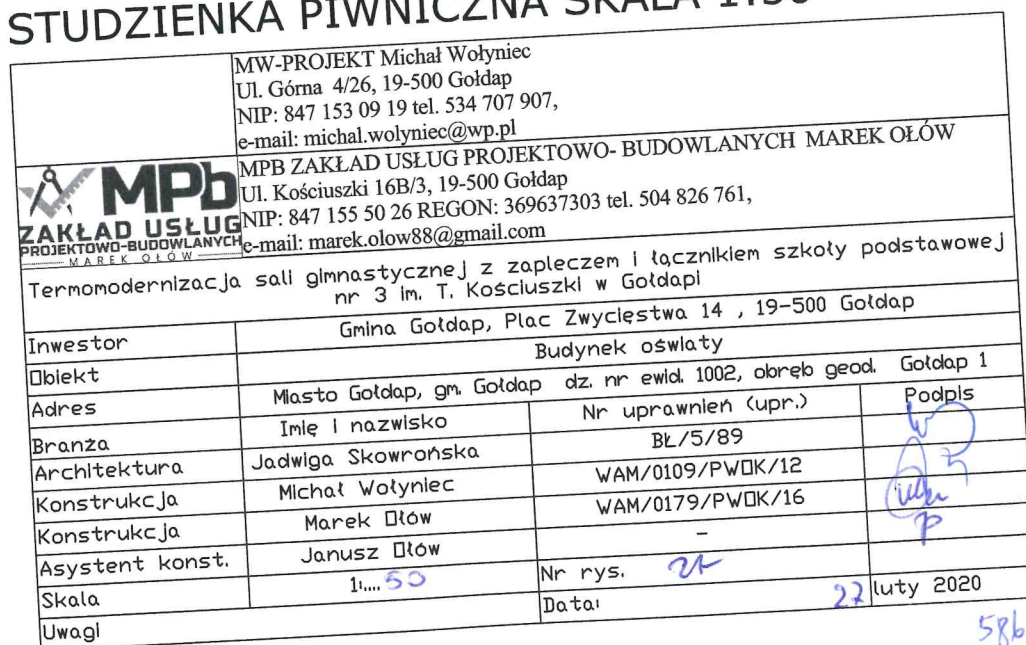 STUDZIENKA PIWNICZNA SKALA 1:50
MW-PROJEKT Michał Wołyniec
Ul. Górna 4/26, 19-500 Gołdap
NIP: 847 153 09 19 tel. 534 707 907,
e-mail: michal.wolyniec@wp.pl
MPb
ZAKŁAD USŁUG
PROJEKTOWO-BUDOWLANYCH
MAREK OŁÓW
MPB ZAKŁAD USŁUG PROJEKTOWO- BUDOWLANYCH MAREK OŁÓW
Ul. Kościuszki 16B/3, 19-500 Gołdap
NIP: 847 155 50 26 REGON: 369637303 tel. 504 826 761,
e-mail: marek.olow88@gmail.com
Termomodernizacja sali gimnastycznej z zapleczem i łącznikiem szkoły podstawowej
nr 3 im. T. Kościuszki w Gołdapi
Inwestor Gmina Gołdap, Plac Zwycięstwa 14 , 19-500 Gołdap
Obiekt Budynek oświaty
Adres Miasto Gołdap, gm. Gołdap dz. nr ewid. 1002, obręb geod. Gołdap 1
Branża Imię i nazwisko Nr uprawnień (upr.) Podpis
Architektura Jadwiga Skowrońska BŁ/5/89
Konstrukcja Michał Wołyniec WAM/0109/PWOK/12
Konstrukcja Marek Ołów WAM/0179/PWOK/16
Asystent konst. Janusz Ołów -
Skala 1:.... 50 Nr rys.
Uwagi Data: 27 luty 2020
586